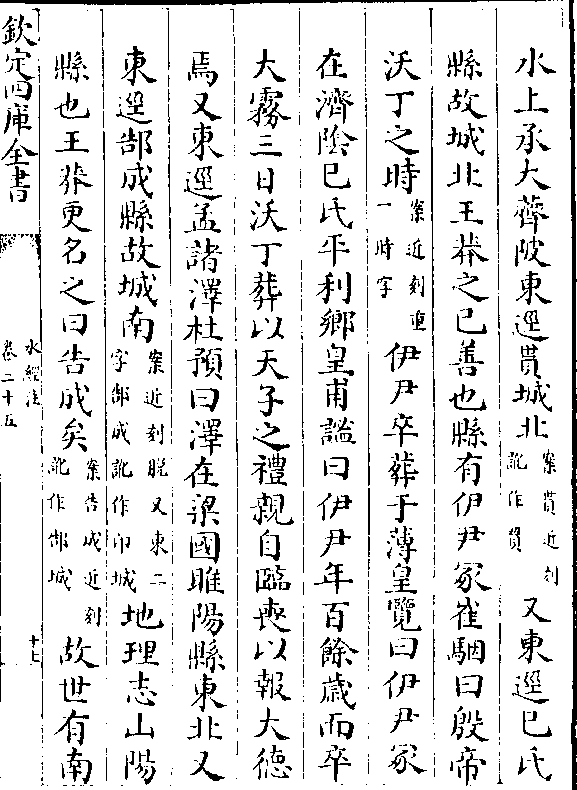 水上承大薺陂東逕貰城北案貰近刻訛作貫又東逕巳氏
縣故城北王莽之巳善也縣有伊尹冢崔駰曰殷帝
沃丁之時案近刻重一時字伊尹卒葬于薄皇覽曰伊尹冢
在濟隂巳氏平利鄉皇甫謐曰伊尹年百餘歳而卒
大霧三日沃丁葬以天子之禮親自臨喪以報大德
焉又東逕孟諸澤杜預曰澤在梁國睢陽縣東北又
東逕郜成縣故城南案近刻脱又東二字郜成訛作印城地理志山陽
縣也王莽更名之曰告成矣案告成近刻訛作郜城故世有南
欽定四庫全書
水經注
卷二十五
十七